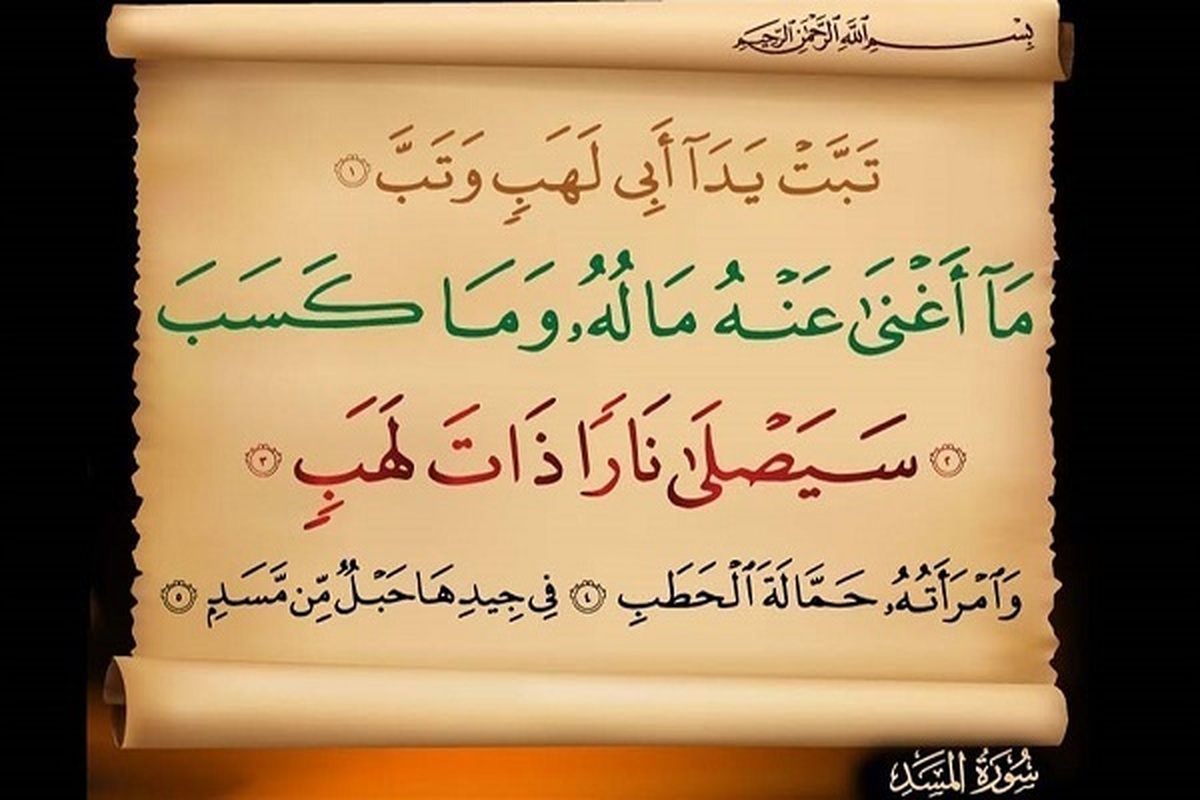 بِسْمِ ٱللَّهِ ٱلرَّحْمَٰنِ ٱلرَّحِيمِ
تَبَّتْ يَدَآ أَبِى لَهَبٍ وَتَبَّ ١
مَآ أَغْنَىٰ عَنْهُ مَالُهُۥ وَمَا كَسَبَ
٢ سَيَصْلَىٰ نَارًا ذَاتَ لَهَبٍ ٣
وَٱمْرَأَتُهُۥ حَمَّالَةَ ٱلْحَطَبِ ٤ فِى جِيدِهَا حَبْلٌ مِّن مَّسَدٍ ٥
سُورَةُ المَسَدِ